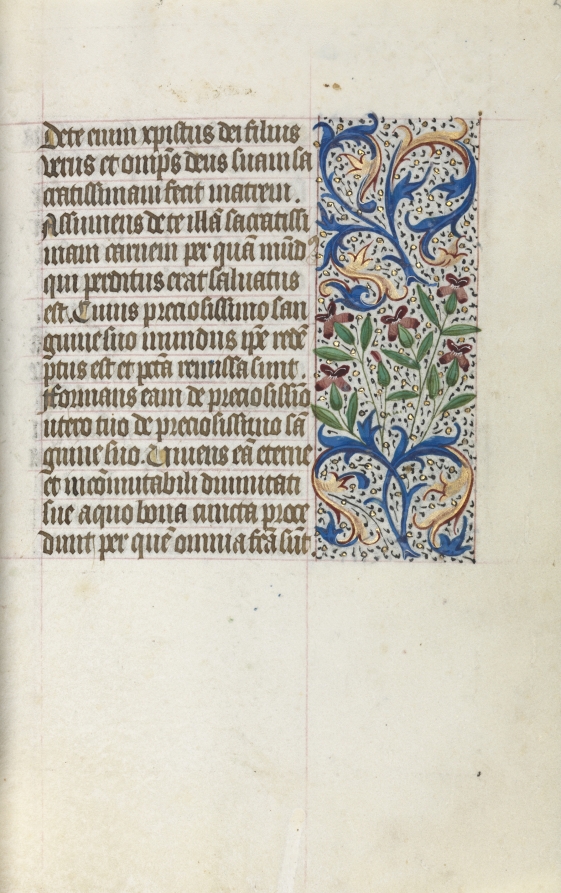 De te enim xpistus dei filius
verus et omīps deus suam sa
cratissimam fecit matrem.
Assumens de te illā sacratissi
mam carnem per quā mūd
qui perditus erat saluatus
est. Cuius preciosissimo san
guine suo mundus ip̄e redē
ptus est et pctā remissa sunt.
fformans eam de preciosissīo
utero tuo de preciosissimo sā
guine suo. Uniens eā eterne
et incōmutabili diuinitati
sue a quo bona cuncta proce
dunt per quē omnia fcā sūt